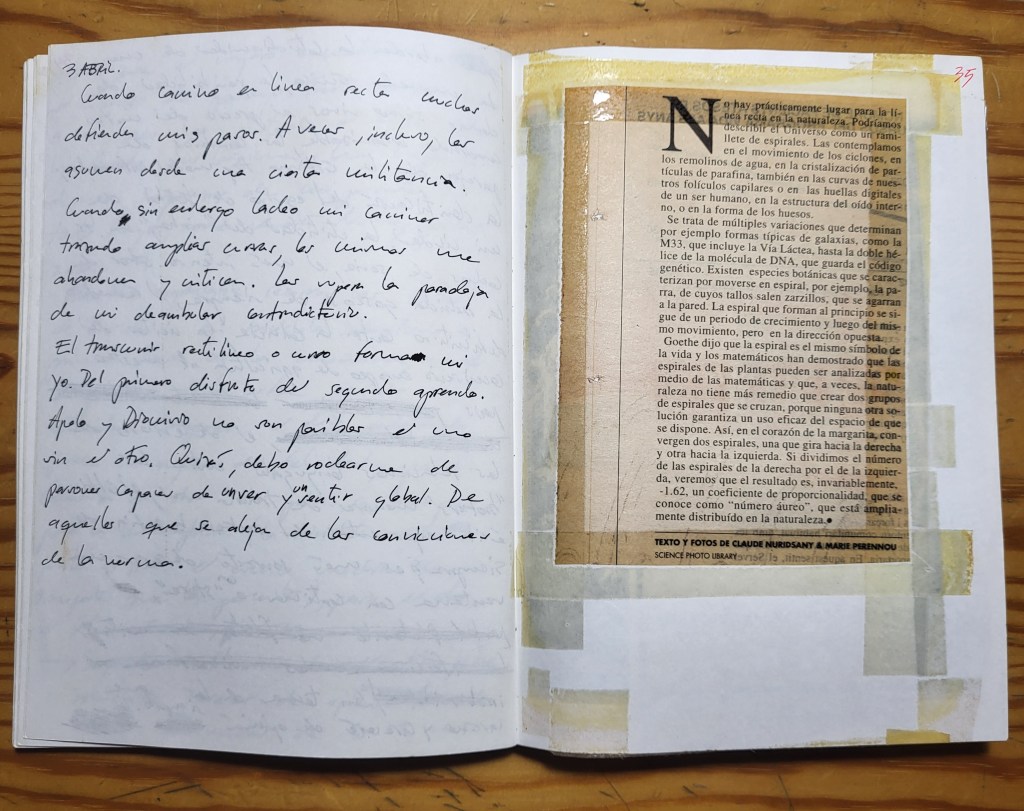 3 ABRIL.
Cuando camino en línea recta muchos
defienden mis pasos. A veces, incluso, los
asumen desde una cierta militancia.
Cuando, sin embargo ladeo mi caminar
trazando amplias curvas, los mismos me
abandonan y critican. Les supera la paradoja
de mi deambular contradictorio.
El transcurrir rectilíneo o curvo forma mi
yo. Del primero disfruto del segundo aprendo.
Apolo y Dionisio no son posibles el uno
sin el otro. Quizás, debo rodearme de
personas capaces de un ver y un sentir global. De
aquellas que se alejan de las convicciones
de la norma.
35
No hay prácticamente lugar para la lí-
nea recta en la naturaleza. Podríamos
describir el Universo como un rami-
llete de espirales. Las contemplamos
en el movimiento de los ciclones, en
los remolinos de agua, en la cristalización de par-
tículas de parafina, también en las curvas de nues-
tros folículos capilares o en las huellas digitales
de un ser humano, en la estructura del oído inter-
no, o en la forma de los huesos.
Se trata de múltiples variaciones que determinan
por ejemplo formas típicas de galaxias, como la
M33, que incluye la Vía Láctea, hasta la doble hé-
lice de la molécula de DNA, que guarda el código
genético. Existen especies botánicas que se carac-
terizan por moverse en espiral, por ejemplo, la pa-
rra, de cuyos tallos salen zarzillos, que se agarran
a la pared. La espiral que forman al principio se si-
gue de un periodo de crecimiento y luego del mis-
mo movimiento, pero en la dirección opuesta.
Goethe dijo que la espiral es el mismo símbolo de
la vida y los matemáticos han demostrado que las
espirales de las plantas pueden ser analizadas por
medio de las matemáticas y que, a veces, la natu-
raleza no tiene más remedio que crear dos grupos
de espirales que se cruzan, porque ninguna otra so-
lución garantiza un uso eficaz del espacio de que
se dispone. Así, en el corazón de la margarita, con-
vergen dos espirales, una que gira hacia la derecha
y otra hacia la izquierda. Si dividimos el número
de las espirales de la derecha por el de la izquier-
da, veremos que el resultado es, invariablemente,
-1.62, un coeficiente de proporcionalidad, que se
conoce como “número áureo”, que está amplia-
mente distribuído en la naturaleza.●
TEXTO Y FOTOS DE CLAUDE NURIDSANY & MARIE PERENNOU
SCIENCE PHOTO LIBRARY